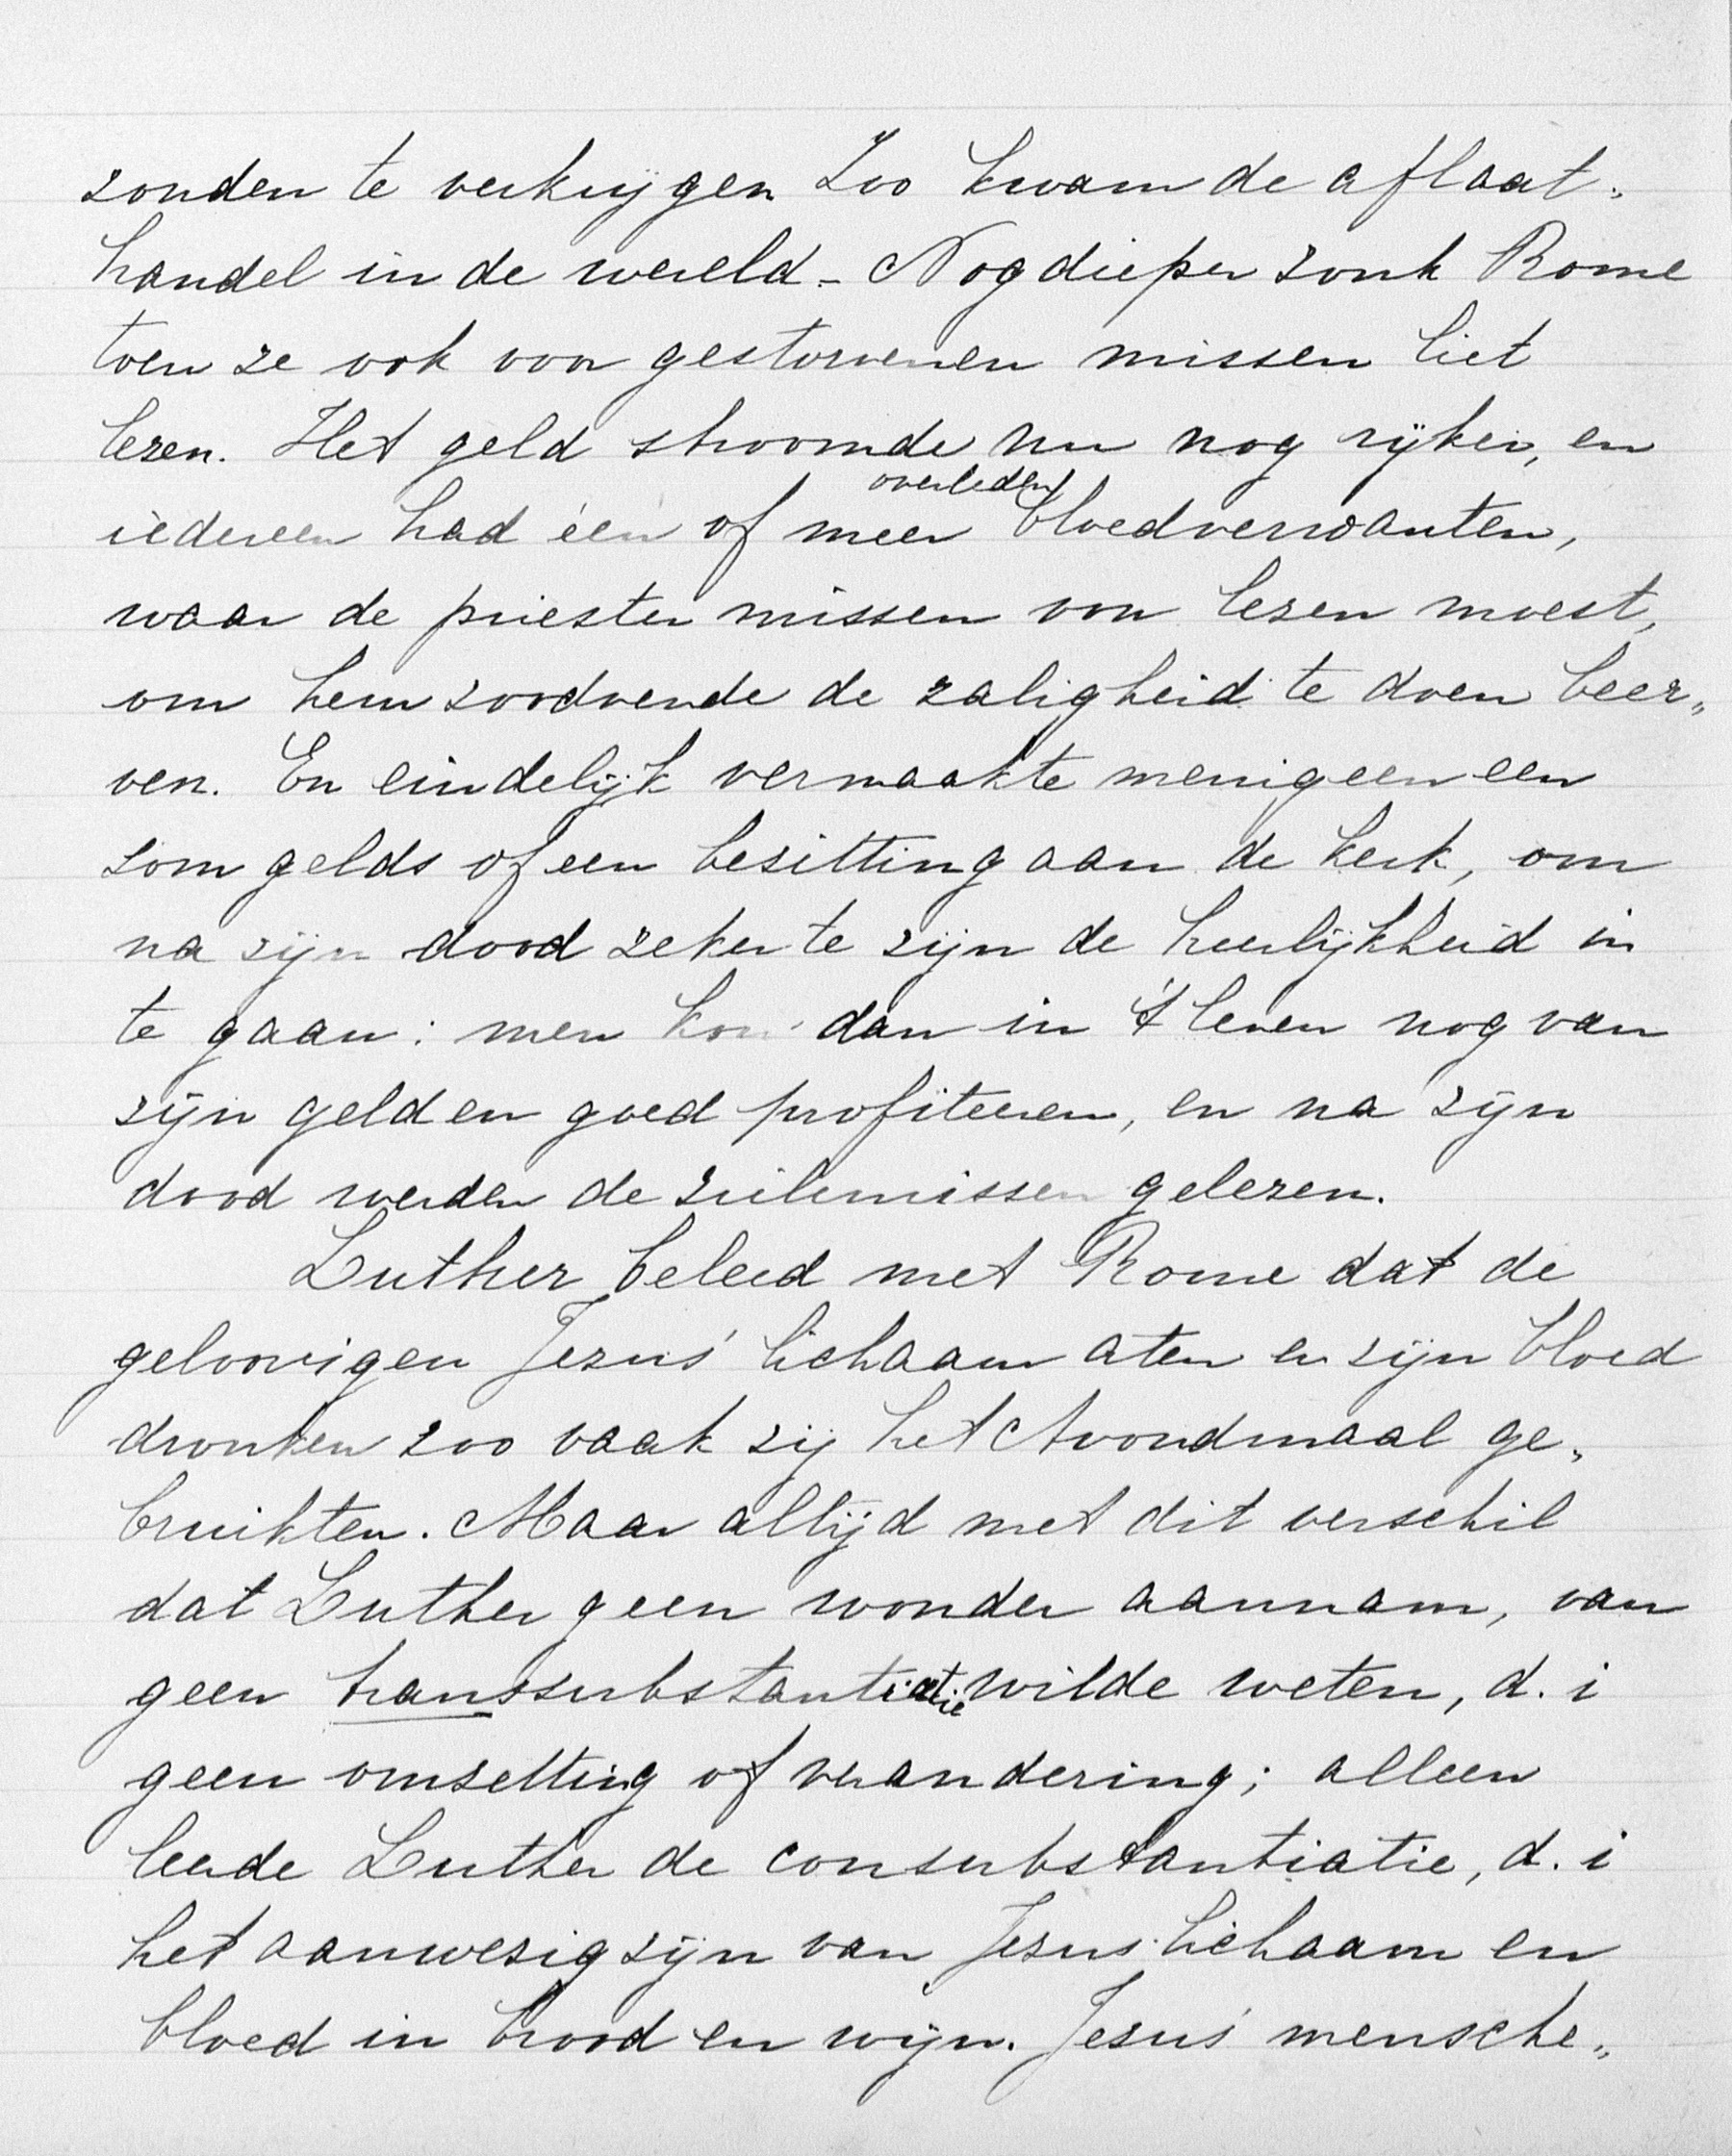 zonden te verkrijgen Zoo kwam de aflaat„
handel in de wereld. – Nog dieper zonk Rome
toen ze ook voor gestorvenen missen liet
lezen. Het geld stroomde nu nog rijker, en
overleden
iedereen had één of meer bloedverwanten,
waar de priester missen voor lezen moest,
om hem zoodoende de zaligheid te doen beer„
ven. En eindelijk vermaakte menigeen een
som gelds of een bezitting aan de kerk, om
na zijn dood zeker te zijn de heerlijkheid in
te gaan: men kon dan in 't leven nog van
zijn geld en goed profiteeren, en na zijn
dood werden de zielemissen gelezen.
Luther beleed met Rome dat de
geloovigen Jezus' lichaam aten en zijn bloed
dronken zoo vaak zij het Avondmaal ge„
bruikten. Maar altijd met dit verschil
dat Luther geen wonder aannam, van
geen transsubstantiatie wilde weten, d. i
geen omzetting of verandering; alleen
leerde Luther de consubstantiatie, d. i
het aanwezig zijn van Jezus' lichaam en
bloed in brood en wijn. Jezus' mensche„